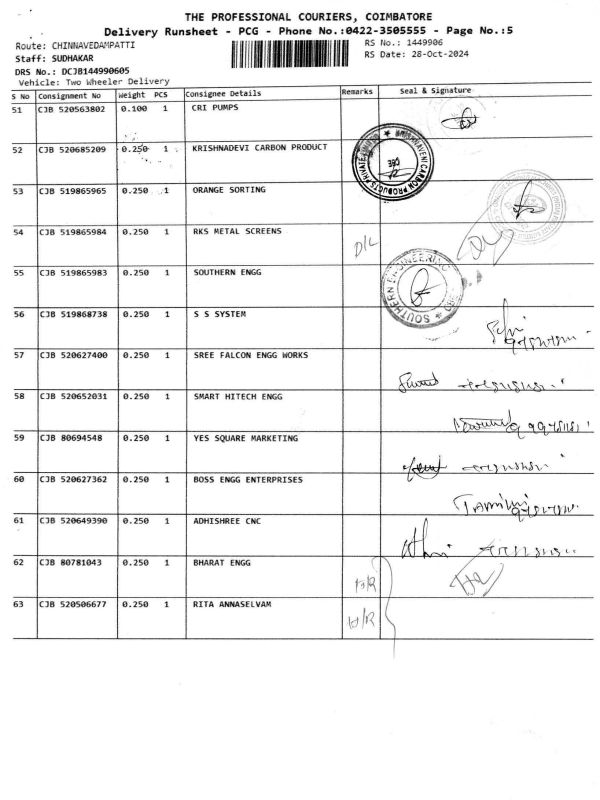 THE PROFESSIONAL COURIERS, COIMBATORE
Delivery Runsheet - PCG - Phone No.:0422-3505555 - Page No.:5
Route: CHINNAVEDAMPATTI
RS No.: 1449906
Staff: SUDHAKAR
RS Date: 28-Oct-2024
DRS No.: DCJB144990605
Vehicle: Two Wheeler Delivery
S No Consignment No Weight PCS Consignee Details Remarks Seal & Signature
51 CJB 520563802 0.100 1 CRI PUMPS
52 CJB 520685209 0.250 1 KRISHNADEVI CARBON PRODUCT
53 CJB 519865965 0.250 1 ORANGE SORTING
54 CJB 519865984 0.250 1 RKS METAL SCREENS D/L
55 CJB 519865983 0.250 1 SOUTHERN ENGG
SOUTHERN ENGINEERING
56 CJB 519868738 0.250 1 S S SYSTEM
57 CJB 520627400 0.250 1 SREE FALCON ENGG WORKS
58 CJB 520652031 0.250 1 SMART HITECH ENGG
59 CJB 80694548 0.250 1 YES SQUARE MARKETING
60 CJB 520627362 0.250 1 BOSS ENGG ENTERPRISES
61 CJB 520649390 0.250 1 ADHISHREE CNC
62 CJB 80781043 0.250 1 BHARAT ENGG
63 CJB 520506677 0.250 1 RITA ANNASELVAM